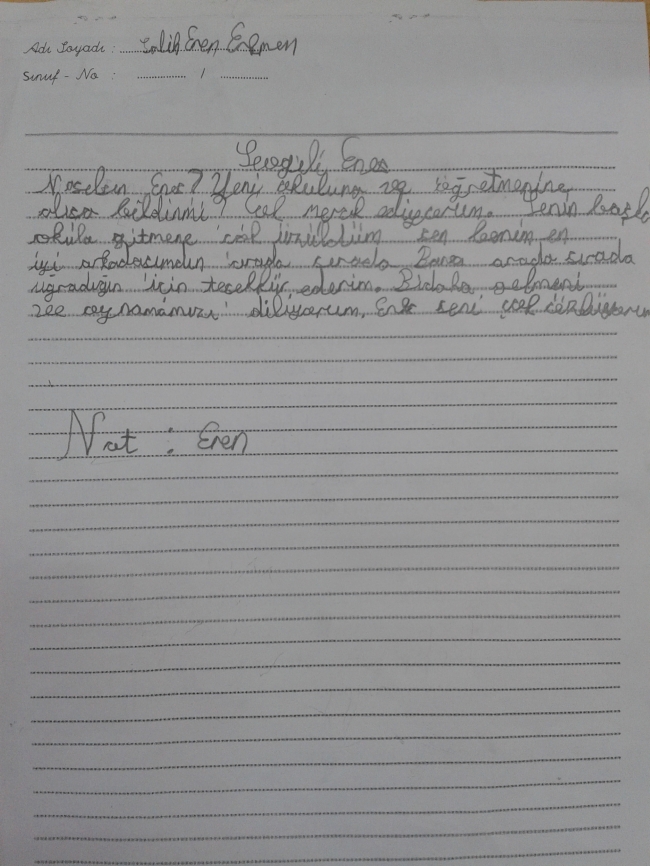 Adı Soyadı : Salih Eren Erkmen
Sınıf - No : ............... / ...............
Sevgili Enes
Nasılsın Enes? Yeni okuluna ve öğretmenine
alışa bildinmi? Çok merak ediyorum. Senin başka
okula gitmene çok üzüldüm sen benim en
iyi arkadaşımdın arada sırada Bana arada sırada
uğradığın için teşekkür ederim. Bidaha gelmeni
ve oynamamızı diliyorum. Enes seni çok özlüyorum
Not : Eren